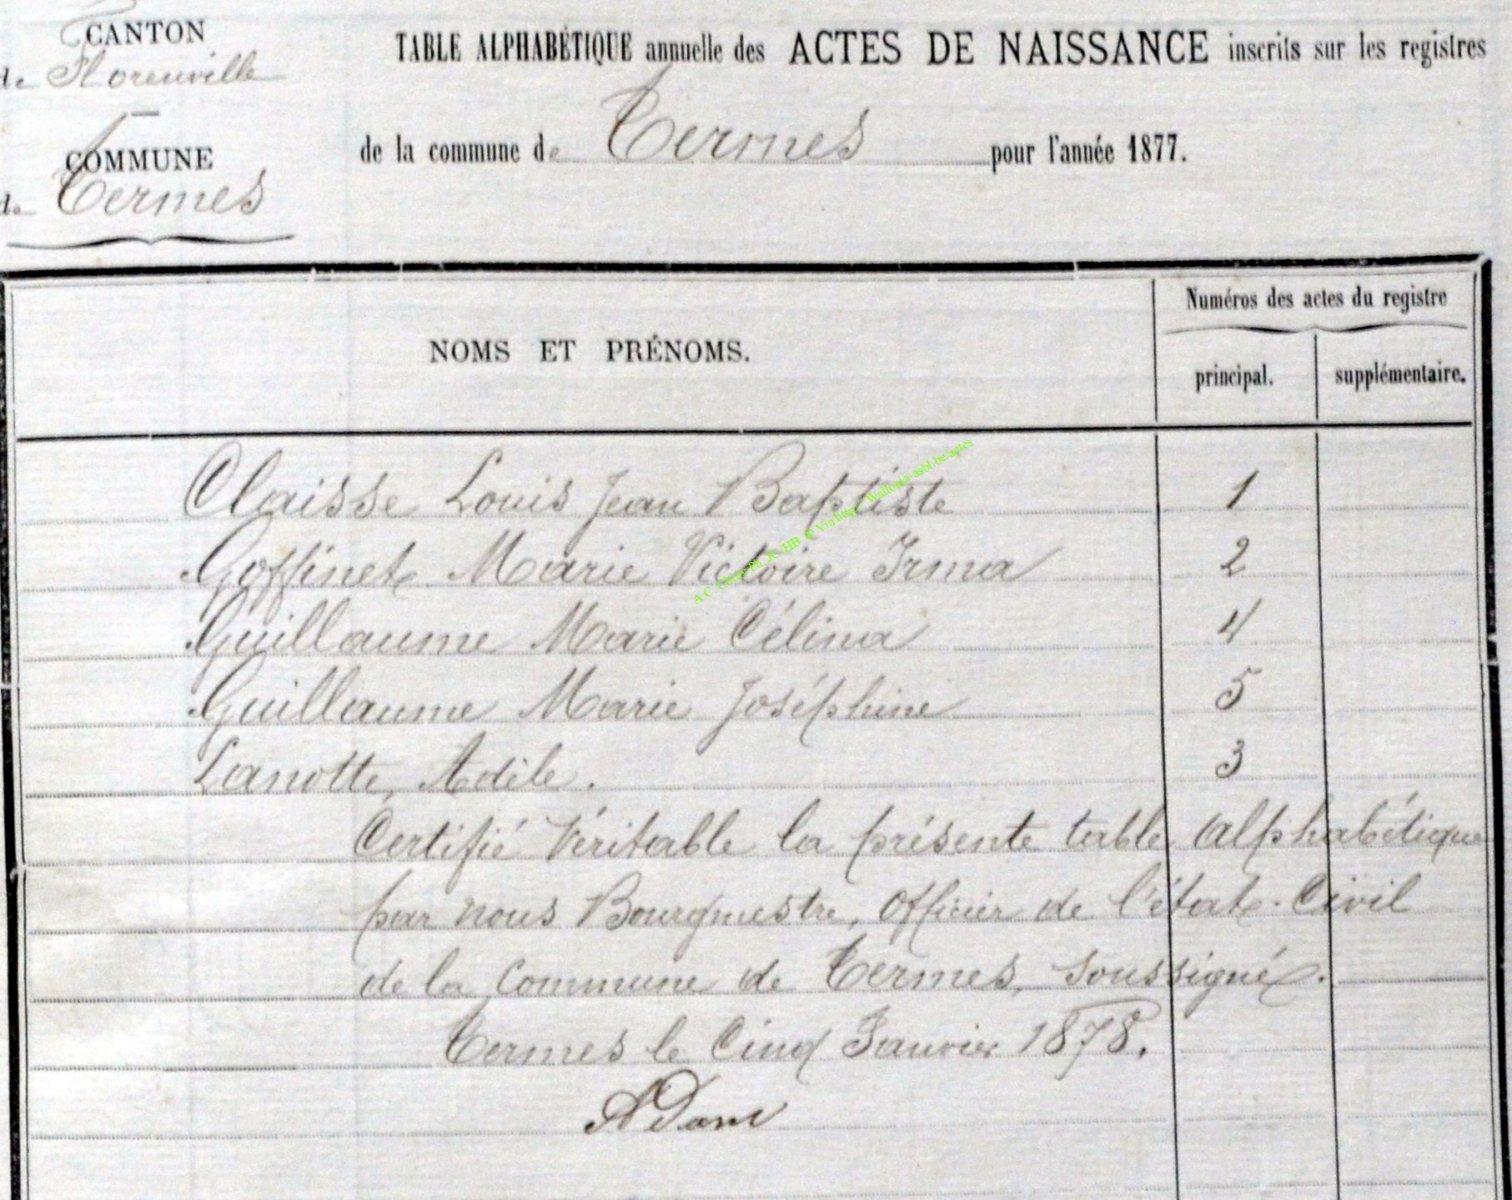 CANTON
de Florenville
TABLE ALPHABÉTIQUE annuelle des ACTES DE NAISSANCE inscrits sur les registres
COMMUNE
de Termes
de la commune de Termes pour l'année 1877.
NOMS ET PRÉNOMS.
Numéros des actes du registre
principal. supplémentaire.
Claisse Louis Jean Baptiste 1
Goffinet Marie Victoire Irma 2
Guillaume Marie Célina 4
Guillaume Marie Joséphine 5
Lanotte, Adèle. 3
Certifié Véritable la présente table alphabétique
par nous Bourgmestre, Officier de l'état-Civil
de la Commune de Termes, soussigné.
Termes le Cinq Janvier 1878.
ADam